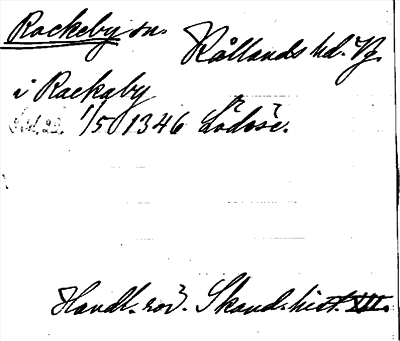 Rackeby sn. Kållands hd. Vg.
i Rackaby
1/5 1346 Lödöse.
Handl. rör. Skand. hist. XII.